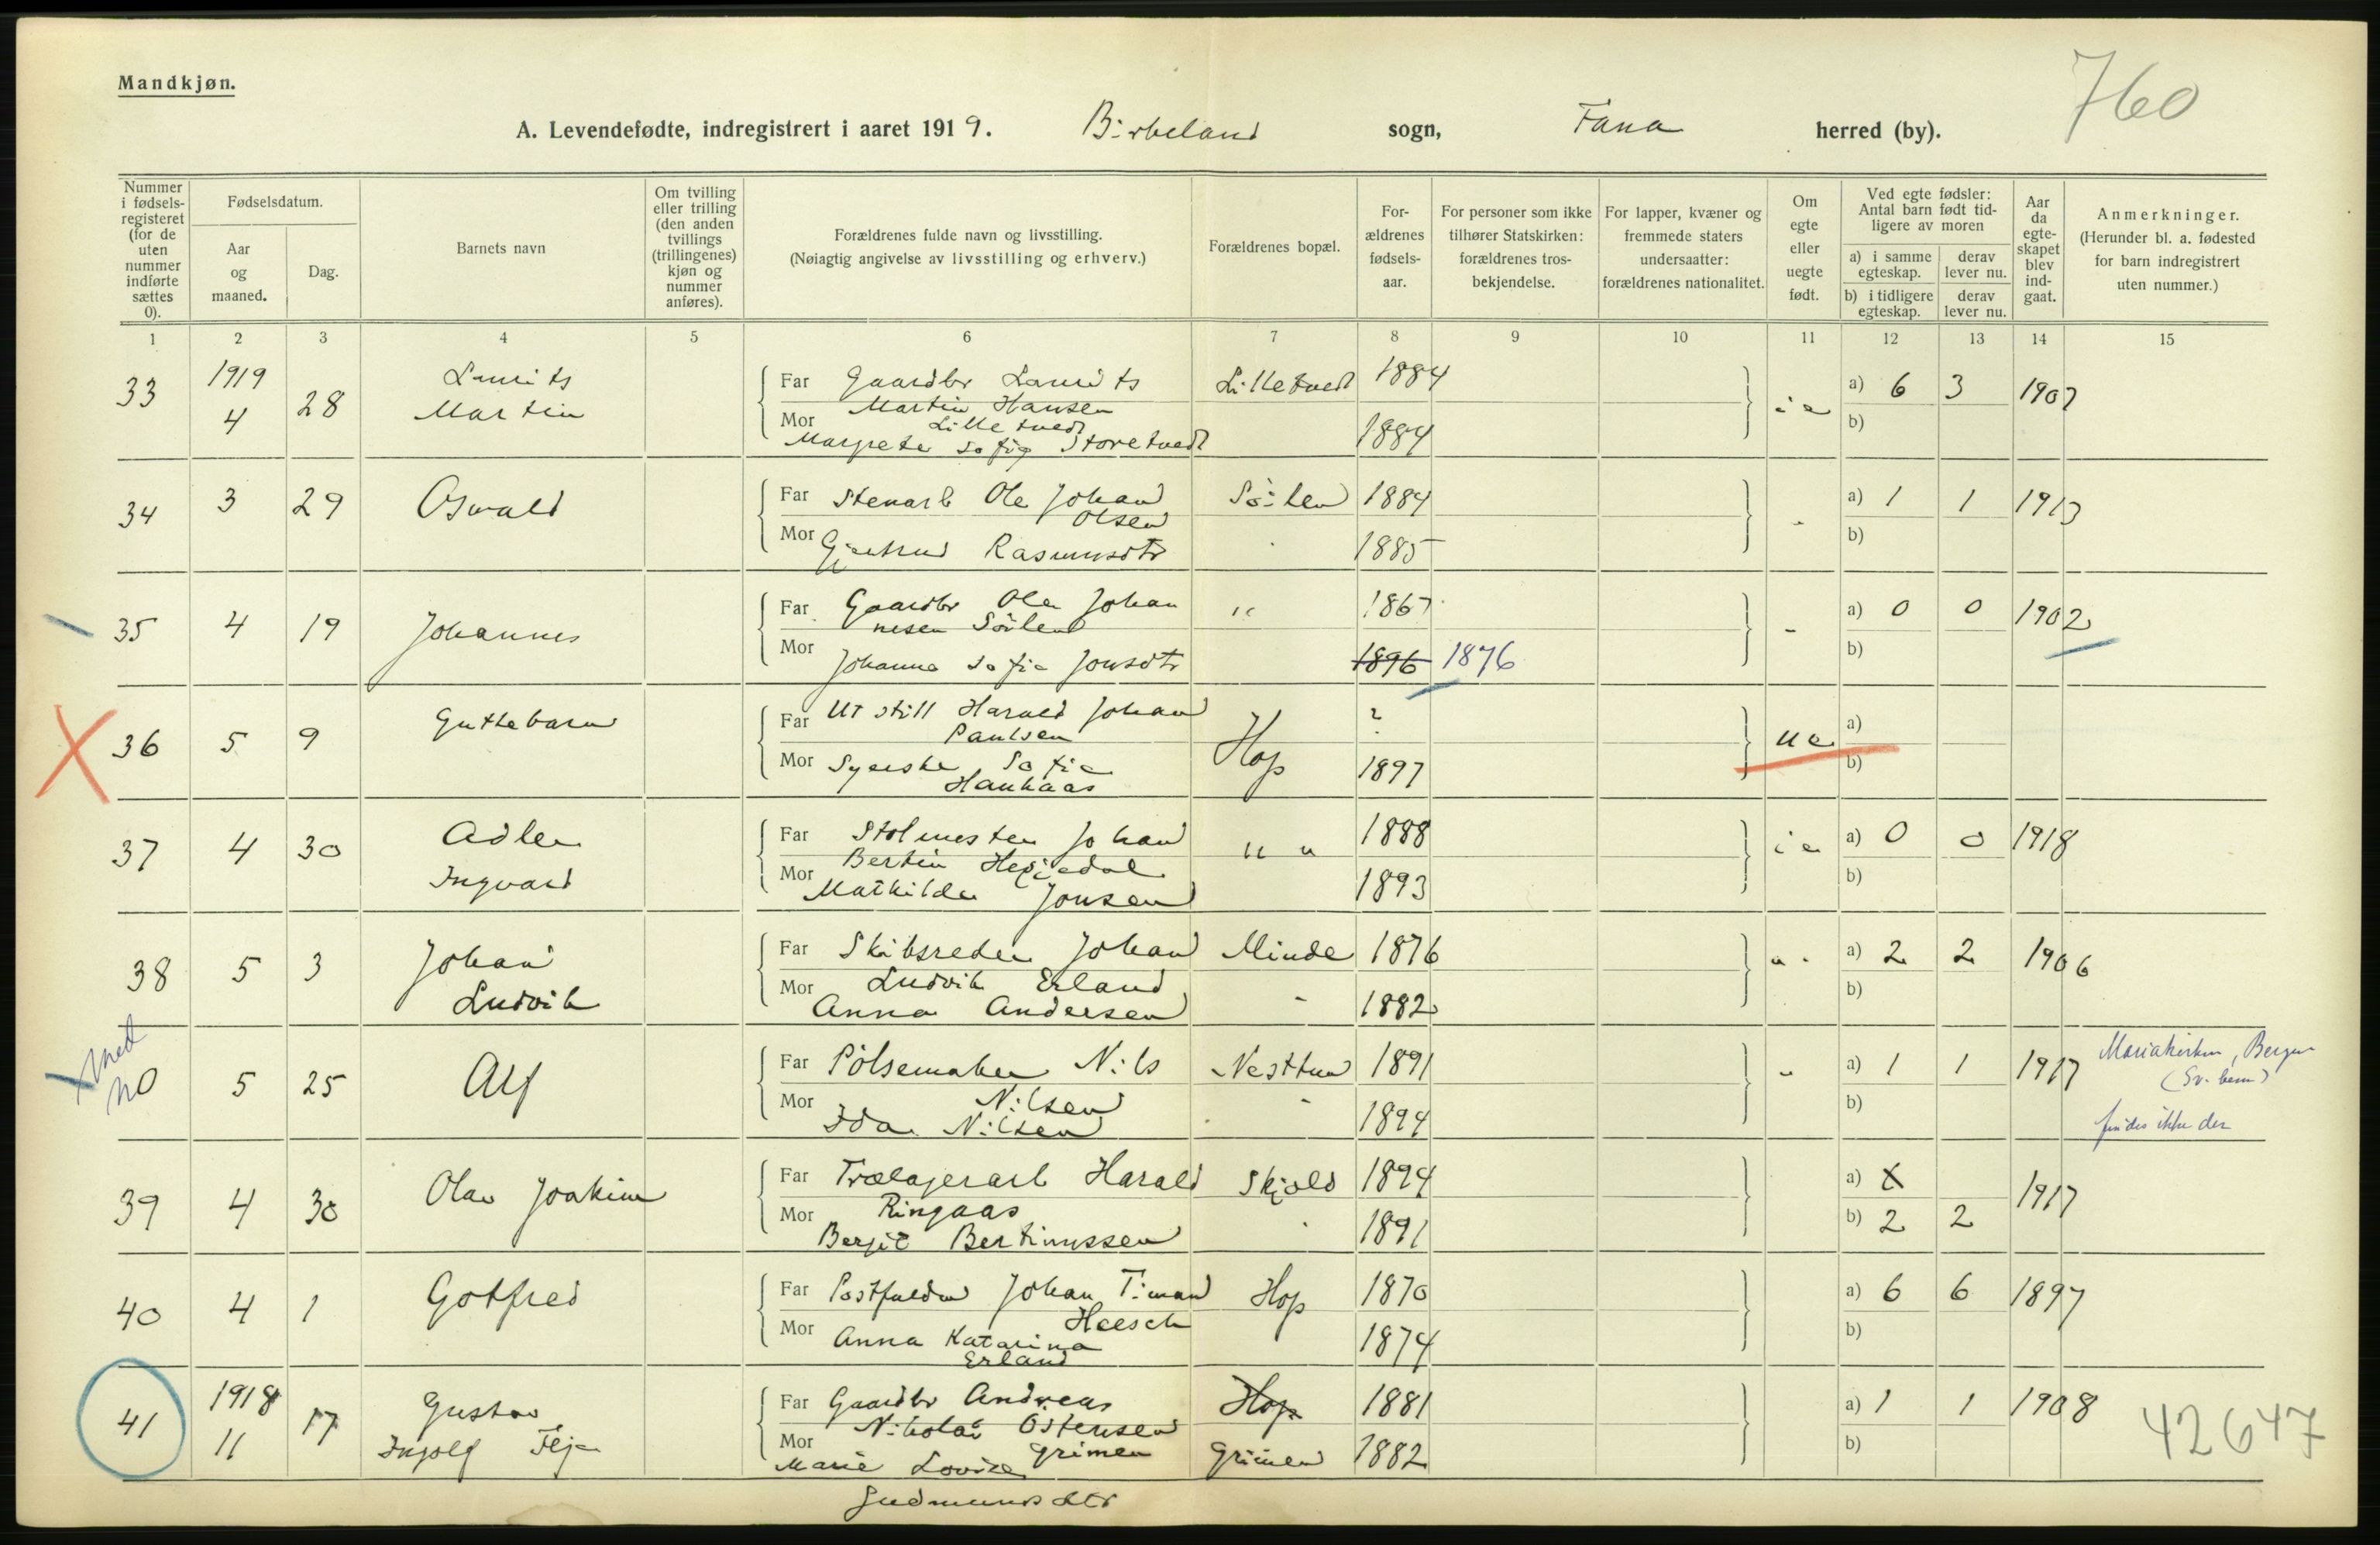 Mandkjøn.
760
A. Levendefødte, indregistrert i aaret 1919. Birkeland sogn, Fana herred (by).
Nummer i fødsels-registeret (for de uten nummer indførte sættes 0).
Fødselsdatum.
Aar og maaned.
Dag.
Barnets navn
Om tvilling eller trilling (den anden tvillings (trillingenes) kjøn og nummer anføres).
Forældrenes fulde navn og livsstilling.
(Nøiagtig angivelse av livsstilling og erhverv.)
Forældrenes bopæl.
For-ældrenes fødsels-aar.
For personer som ikke tilhører Statskirken: forældrenes tros-bekjendelse.
For lapper, kvæner og fremmede staters undersaatter: forældrenes nationalitet.
Om egte eller uegte født.
Ved egte fødsler: Antal barn født tid-ligere av moren
a) i samme egteskap.
derav lever nu.
b) i tidligere egteskap.
derav lever nu.
Aar da egte-skapet blev ind-gaat.
Anmerkninger.
(Herunder bl. a. fødested for barn indregistrert uten nummer.)
1 2 3 4 5 6 7 8 9 10 11 12 13 14 15
33 1919 4 28 Laurits Martin
Far Gaardbr Laurits Lilletvedt 1884
Martin Hansen
Mor Lilletvedt
Margrete Sofie Storetvedt 1884
ie a) 6 3 1907
b)
34 3 29 Oswald
Far Stenarb Ole Johan Olsen Sörlen 1884
Mor Gjertrud Rasmusdtr 1885
" a) 1 1 1913
b)
35 4 19 Johannes
Far Gaardbr Ole Johan " 1867
nesen Sörlen
Mor Johanna Sofie Jonsdtr 1896 1876
" a) 0 0 1902
b)
36 5 9 Guttebarn
Far Ut still Harald Johan ?
Paulsen
Mor Syerske Sofie Hop 1897
Haukaas
ue a)
b)
37 4 30 Adler Ingvard
Far Stolmester Johan " " 1888
Bertin Hegjedal
Mor Mathilde Jonsen 1893
ie a) 0 0 1918
b)
38 5 3 Johan Ludvik
Far Skibsreder Johan Minde 1876
Ludvik Erland
Mor Anna Andersen " 1882
" " a) 2 2 1906
b)
med no
0 5 25 Alf
Far Pölsemaker Nils Nesttun 1891
Nilsen
Mor Ida Nilsen " 1894
" a) 1 1 1917
b)
Mariakirken, Bergen
findes ikke der
39 4 30 Olav Joakim
Far Trælagerarb Harald Skjold 1894
Ringaas
Mor Bergit Bertinussen " 1891
a) X 1917
b) 2 2
40 4 1 Gotfred
Far Postfuldm Johan Timan Hop 1870
Heesch
Mor Anna Katarina 1874
Erland
a) 6 6 1897
b)
41 1918 11 17 Gustav
Ingolf
Far Gaardbr Andreas Hop 1881
Nikolai Östensen
Mor Grimen
Marie Lovise Grimen 1882
Gudmundsdtr
a) 1 1 1908
b)
42647